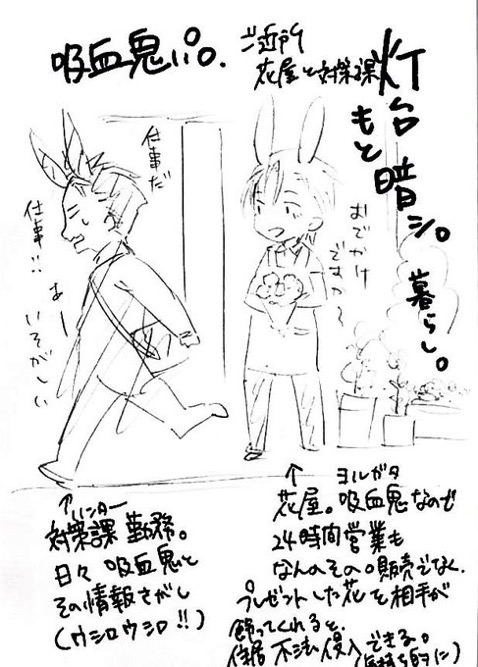 吸血鬼パロ。
ご近所
花屋と対策課
灯台もと暗シ。
暮らし。
仕事だ
仕事!!
あー
いそがしい
おでかけ
ですか〜
↑ハンター
対策課勤務。
日々吸血鬼と
その情報さがし
(ウシロウシロ!!)
↑ヨルガタ
花屋。吸血鬼なので
24時間営業も
なんのその。販売でなく、
プレゼントした花を相手が
飾ってくれると、
住居不法侵入できる。